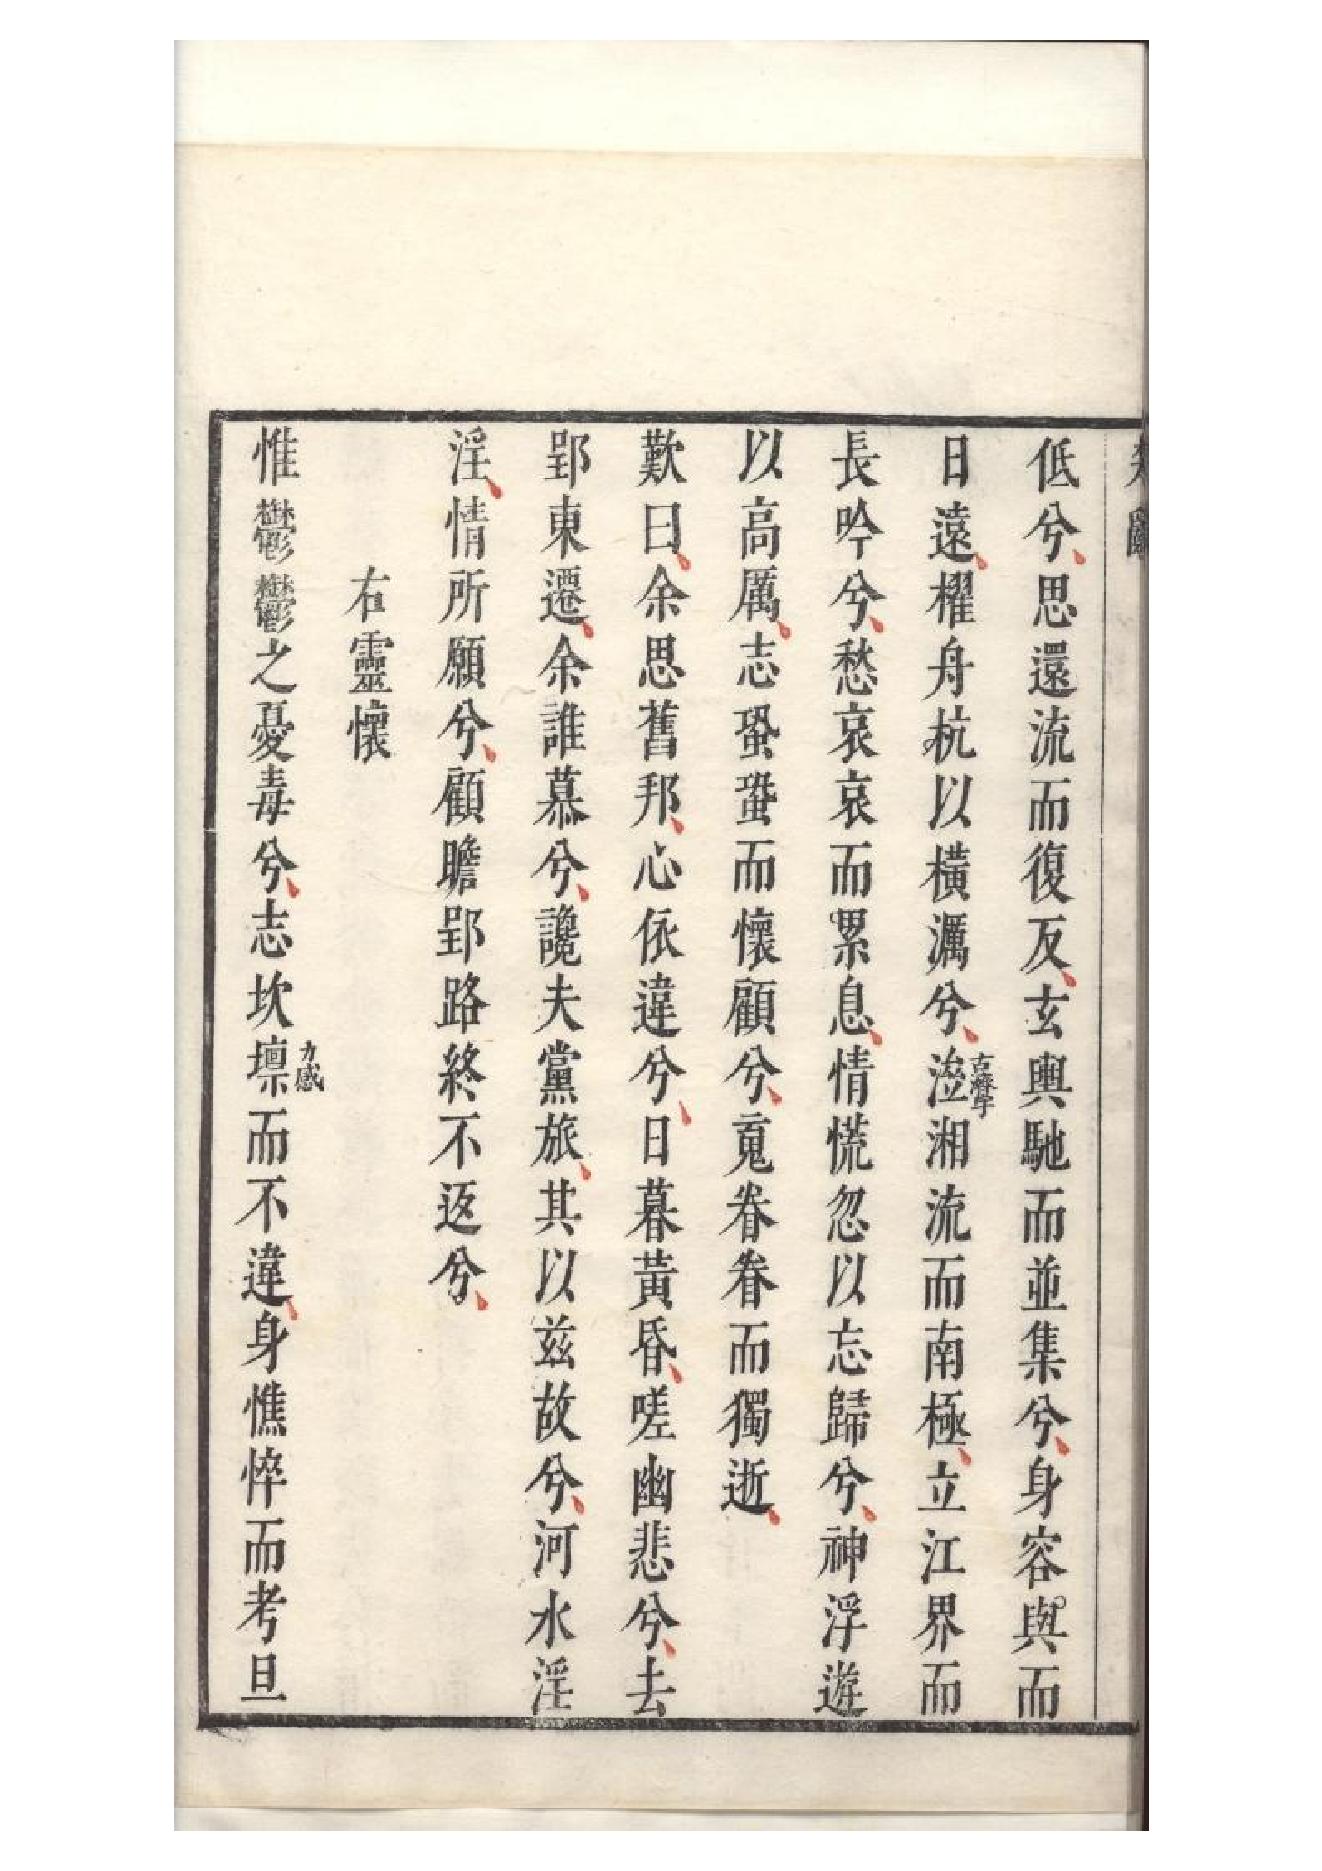 低兮思還流而復反玄輿馳而並集兮身容與而
日遠櫂舟杭以橫濿兮㴉古濟字湘流而南極立江界而
長吟兮愁哀哀而累息情慌忽以忘歸兮神浮遊
以高厲志蛩蛩而懷顧兮䰟眷眷而獨逝
歎曰余思舊邦心依違兮日暮黃昏嗟幽悲兮去
郢東遷余誰慕兮讒夫黨旅其以兹故兮河水淫
淫情所願兮顧瞻郢路終不返兮
右靈懷
惟鬱鬱之憂毒兮志坎壈力感而不違身憔悴而考旦